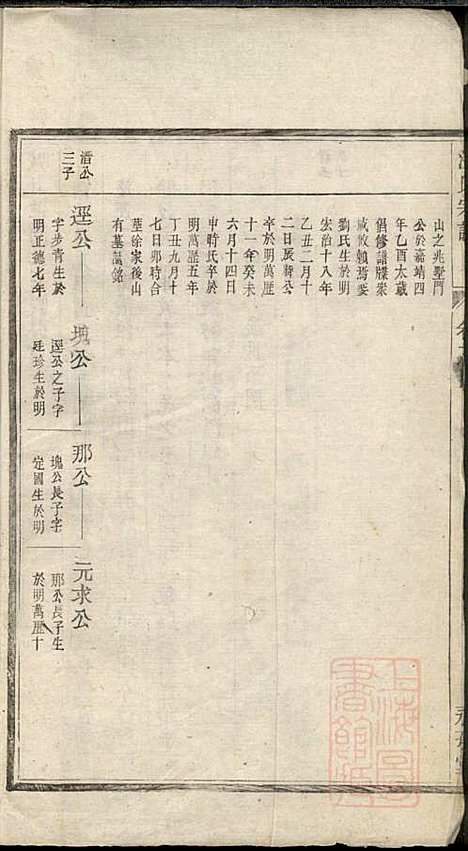 山之兆墅門
公於嘉靖四
年乙酉太歲
倡修譜牒眾
咸攸賴焉娶
劉氏生於明
宏治十八年
乙丑二月十
二日辰時公
卒於明萬歷
十一年癸未
六月十四日
申時氏卒於
明萬歷五年
丁丑九月十
七日卯時合
塟徐家後山
有墓碣銘
湝公
三子
逕公
字步青生於
明正德七年
瑰公
逕公之子字
廷珍生於明
那公
瑰公長子字
定國生於明
元求公
那公長子生
於明萬歷十
氏宗譜
上海圖書館藏